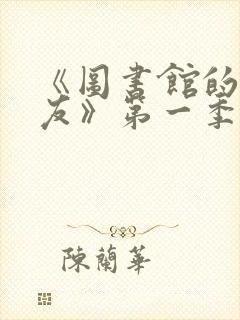 《圖書館的
友》第一季
陳蘭華